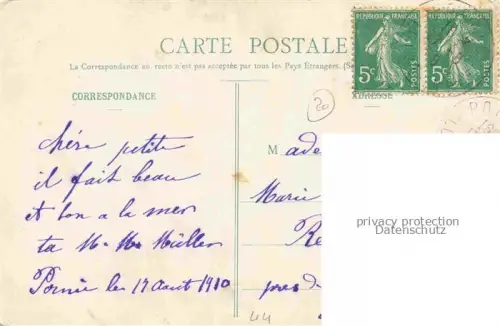 CARTE POSTALE
La Correspondance au recto n'est pas acceptée par tous les Pays Étrangers. (Se
CORRESPONDANCE
ADRESSE
RÉPUBLIQUE FRANÇAISE
5c POSTES
RÉPUBLIQUE FRANÇAISE
5c POSTES
20
chère petite
il fait beau
et bon a la mer
ta M Müller
Pornic le 17 aout 1910
Made
Marie
Re
pres d
44
privacy protection
Datenschutz